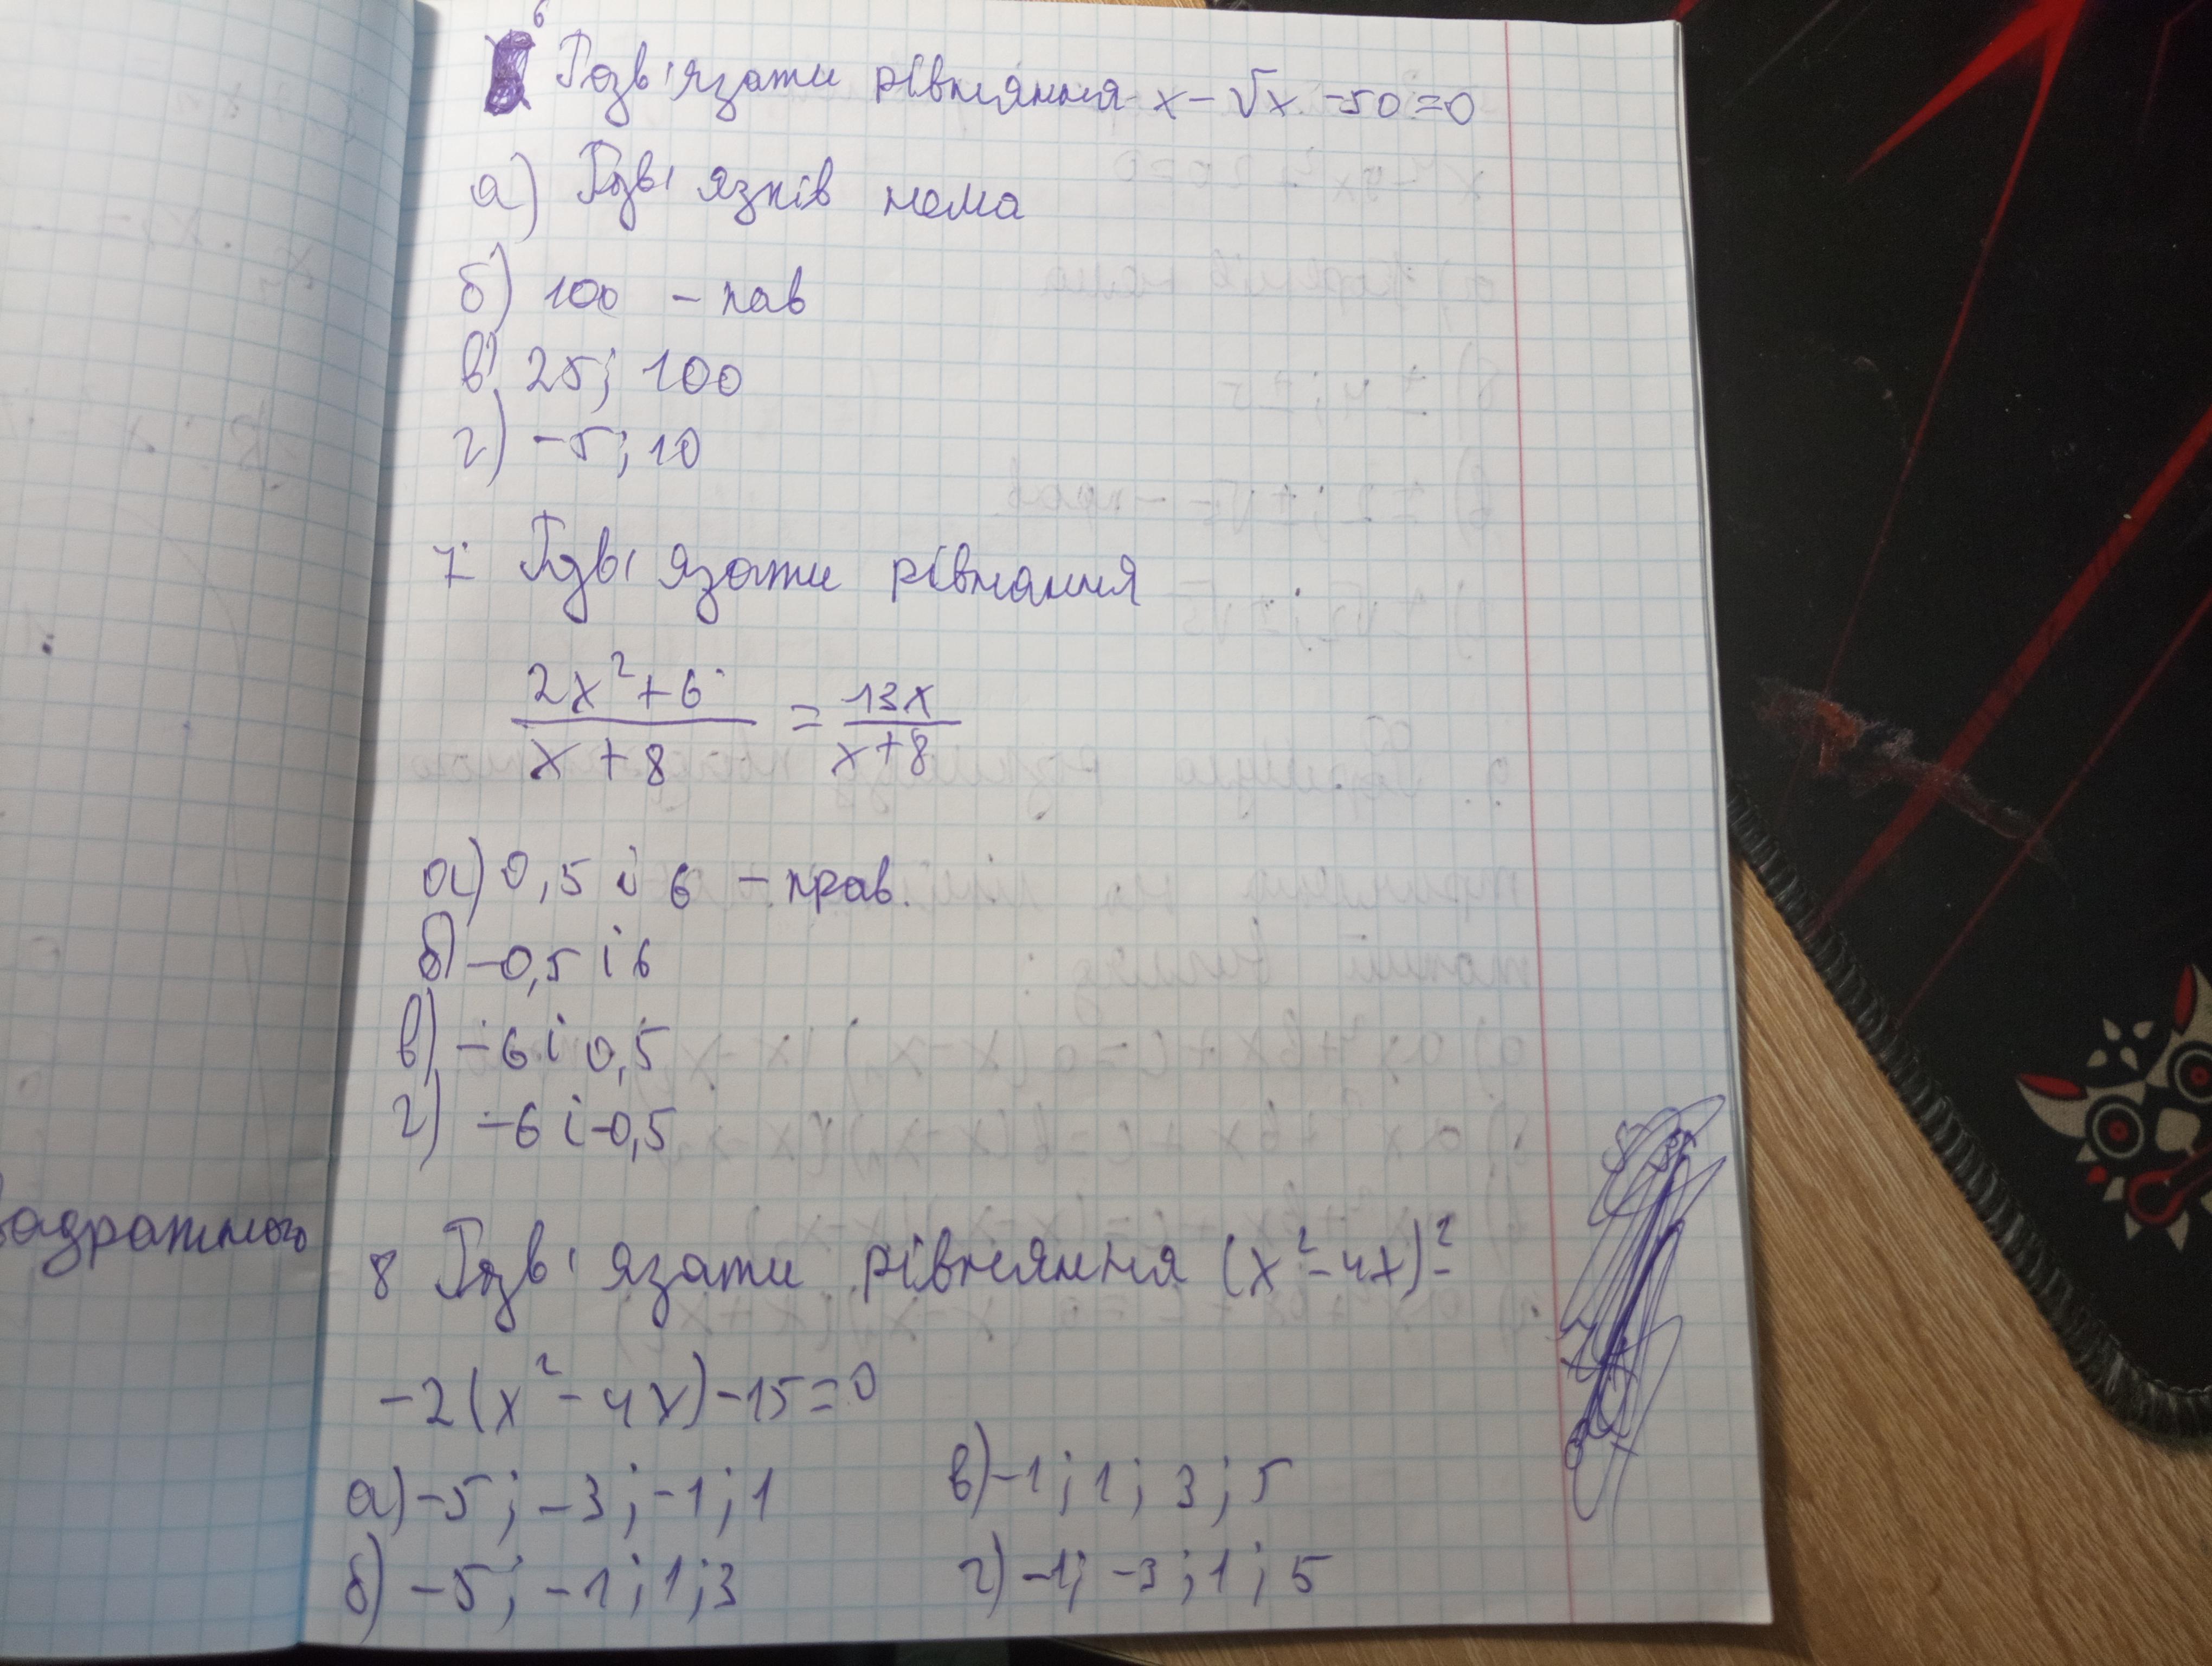 6 Розв'язати рівняння x-√x -50=0
а) Розв'язків нема
б) 100 - пав
в) 25; 100
г) -5; 10
7. Розв'язати рівняння
2x²+6 = 13x
x+8 x+8
а) 0,5 і 6 - прав.
б) -0,5 і 6
в) -6 і 0,5
г) -6 і -0,5
8 Розв'язати рівняння (x²-4x)²-
-2(x²-4x)-15=0
а) -5; -3; -1; 1 в) -1; 1; 3; 5
б) -5; -1; 1; 3 г) -1; -3; 1; 5